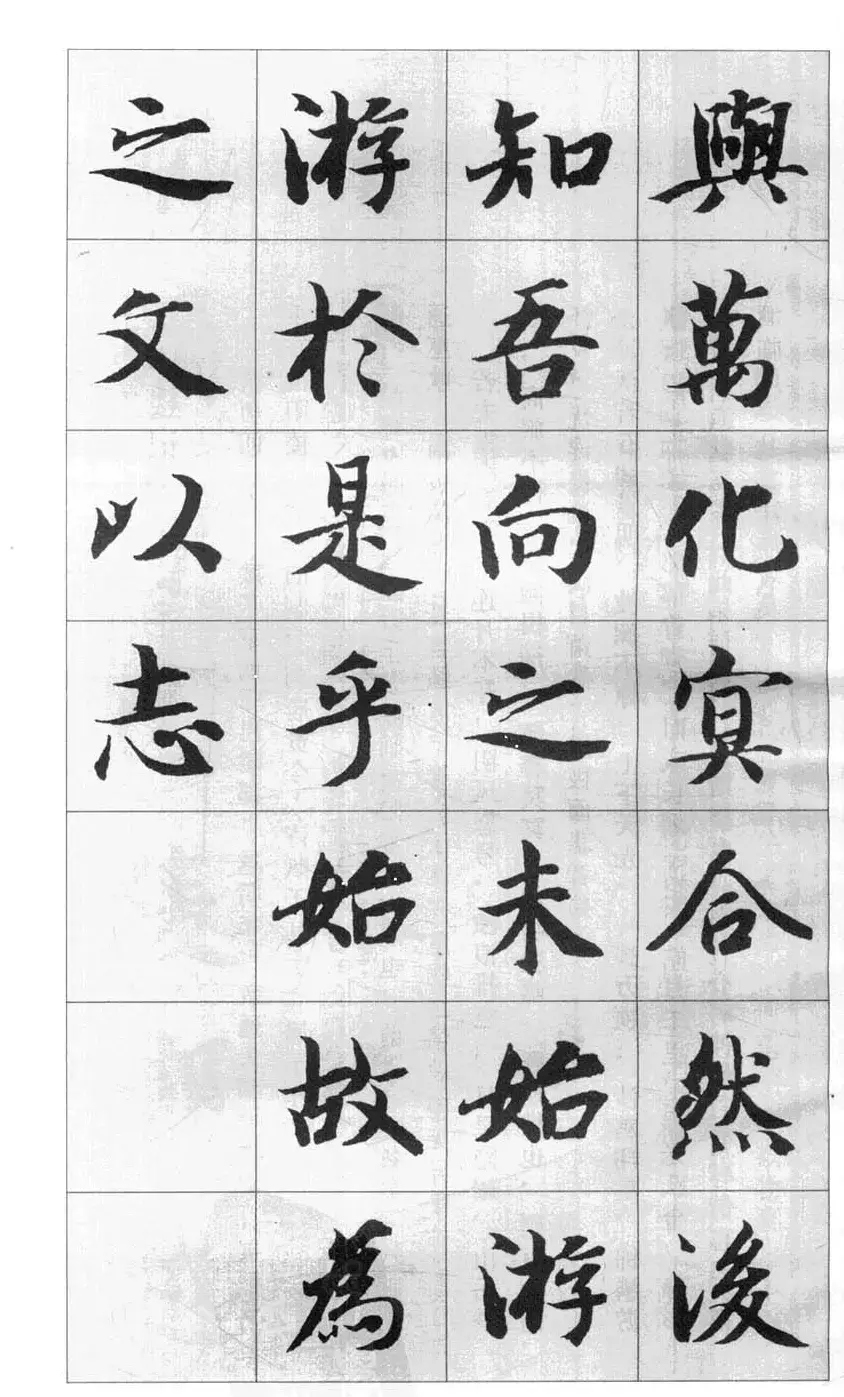 與萬化冥合然後
知吾向之未始游
游於是乎始故為
之文以志